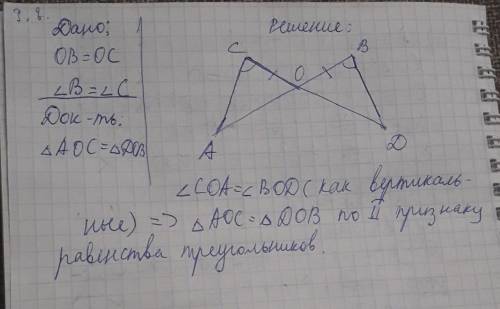 Дано:
OB=OC
∠B=∠C
Док-ть.
△AOC=△DOB
Решение:
C
B
O
A
D
∠COA=∠BOD(как вертикаль-
ные) => △AOC=△DOB по II признаку
равенства треугольников.